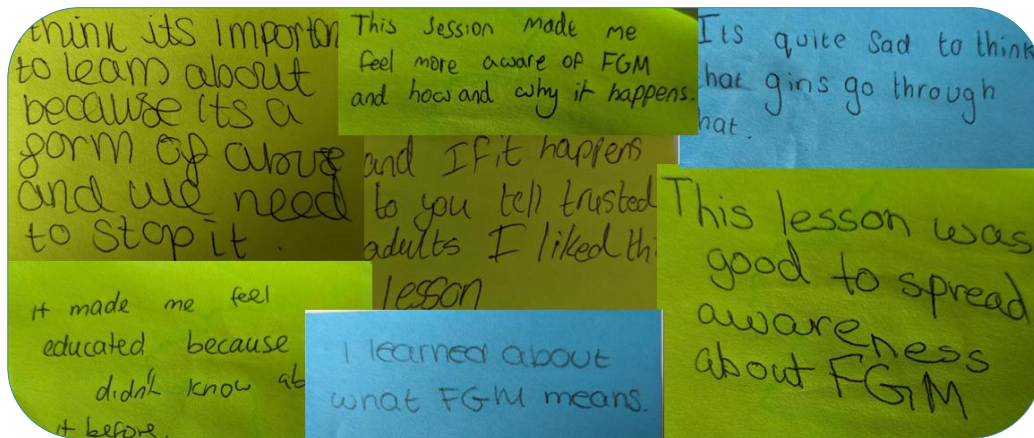 think its importan
to learn about
because its a
form of abuse
and we need
to stop it.
This session made me
feel more aware of FGM
and how and why it happens.
Its quite sad to think
hat girls go through
hat.
and If it happens
to you tell trusted
adults I liked thi
lesson
This lesson was
good to spread
awareness
about FGM
it made me feel
educated because
didn't know ab
it before.
I learned about
what FGM means.